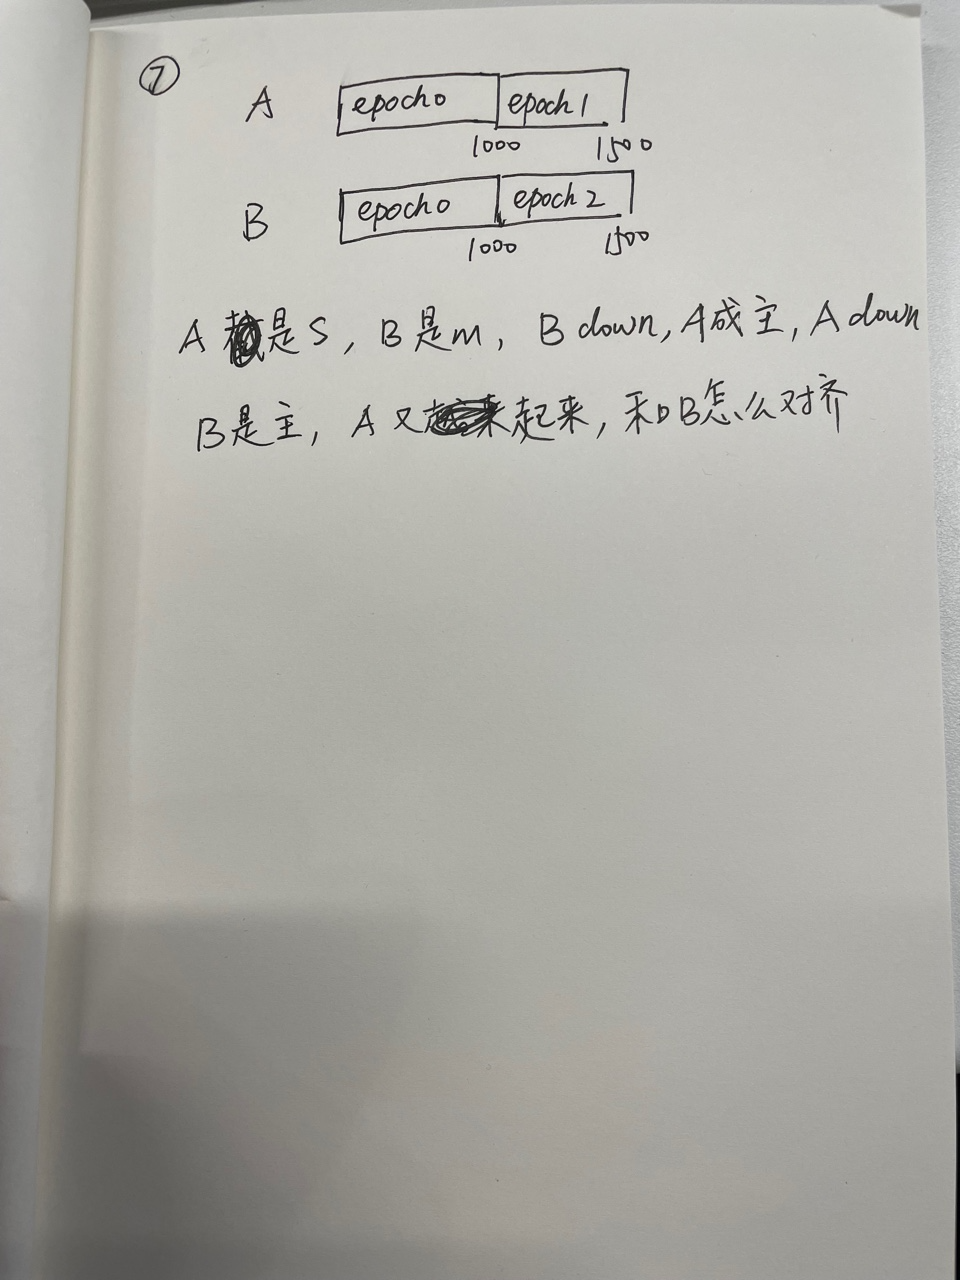 ⑦
A epoch0 epoch1
1000 1500
B epoch0 epoch2
1000 1500
A 是S, B是m, B down, A成主, A down
B是主, A又起来, 和B怎么对齐